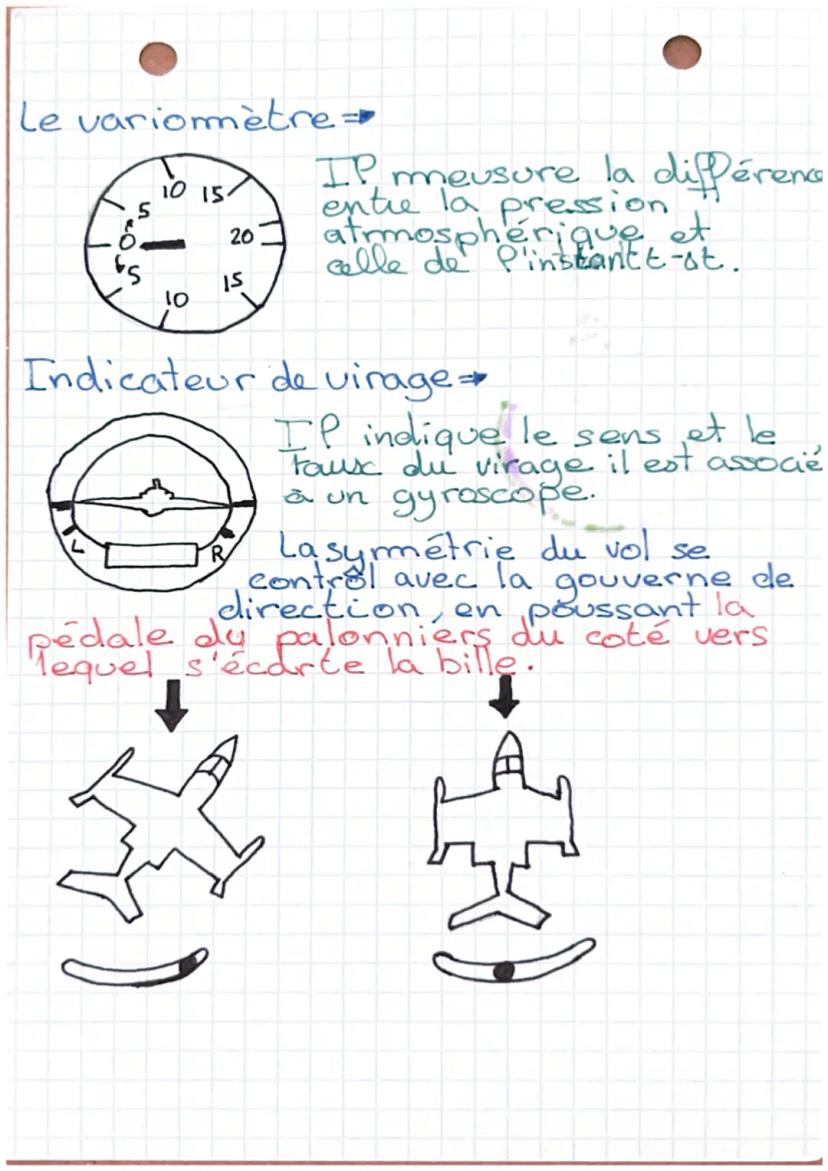 Le variomètre ⇒
10
15
5
0
20
5
10
15
Il meusure la différence
entre la pression
atmosphérique et
celle de l'instant t-Δt.
Indicateur de virage ⇒
Il indique le sens et le
taux du virage il est associé
à un gyroscope.
L
R
La symmétrie du vol se
contrôl avec la gouverne de
direction, en poussant la
pédale du palonniers du coté vers
lequel s'écarte la bille.